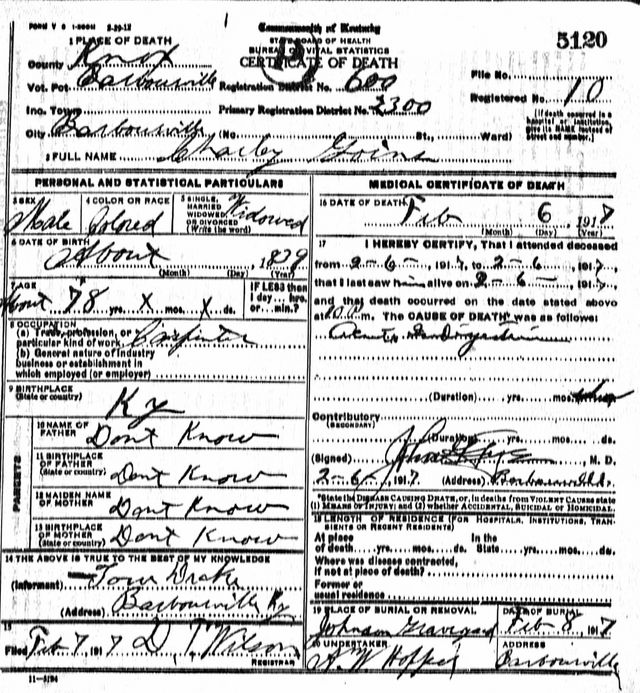 FORM V S 1-200M 2-29-12
Commonwealth of Kentucky
STATE BOARD OF HEALTH
BUREAU OF VITAL STATISTICS
CERTIFICATE OF DEATH
5120
1 PLACE OF DEATH
County Knox
Vot. Pct. Barbourville
Inc. Town
City Barbourville (No. St., Ward)
Registration District No. 600
Primary Registration District No. 2300
File No.
Registered No. 10
[If death occurred in a hospital or institution, give its NAME instead of street and number.]
2 FULL NAME Charley Goins
PERSONAL AND STATISTICAL PARTICULARS
3 SEX Male
4 COLOR OR RACE Colored
5 SINGLE, MARRIED WIDOWED OR DIVORCED (Write the word) Widowed
6 DATE OF BIRTH About 1839
(Month) (Day) (Year)
7 AGE About 78 yrs. X mos. X ds.
IF LESS than 1 day... hrs. or... min.?
8 OCCUPATION
(a) Trade, profession, or particular kind of work Carpinter
(b) General nature of industry business or establishment in which employed (or employer)
9 BIRTHPLACE (State or country) Ky
PARENTS
10 NAME OF FATHER Dont Know
11 BIRTHPLACE OF FATHER (State or country) Dont Know
12 MAIDEN NAME OF MOTHER Dont Know
13 BIRTHPLACE OF MOTHER (State or country) Dont Know
14 THE ABOVE IS TRUE TO THE BEST OF MY KNOWLEDGE
(Informant) Tom Drake
(Address) Barbourville Ky
15
Filed Feb 7, 1917 D. T. Wilson
REGISTRAR
11-5194
MEDICAL CERTIFICATE OF DEATH
16 DATE OF DEATH Feb 6, 1917
(Month) (Day) (Year)
17 I HEREBY CERTIFY, That I attended deceased
from 2-6-, 1917, to 2-6-, 1917,
that I last saw him alive on 2-6-, 1917,
and that death occurred on the date stated above
at m. The CAUSE OF DEATH was as follows:
Acute Indigestion
(Duration) yrs. mos.
Contributory
(SECONDARY)
(Duration) yrs. mos. ds.
(Signed) M. D.
2-6-, 1917 (Address) Barbourville
*State the DISEASE CAUSING DEATH, or, in deaths from VIOLENT CAUSES state (1) MEANS OF INJURY; and (2) whether ACCIDENTAL, SUICIDAL or HOMICIDAL.
18 LENGTH OF RESIDENCE (FOR HOSPITALS, INSTITUTIONS, TRANSIENTS OR RECENT RESIDENTS)
At place of death yrs. mos. ds. In the State yrs. mos. ds.
Where was disease contracted, if not at place of death?
Former or usual residence
19 PLACE OF BURIAL OR REMOVAL Johnson Graveyard
DATE OF BURIAL Feb 8, 1917
20 UNDERTAKER A. W. Hopper
ADDRESS Barbourville